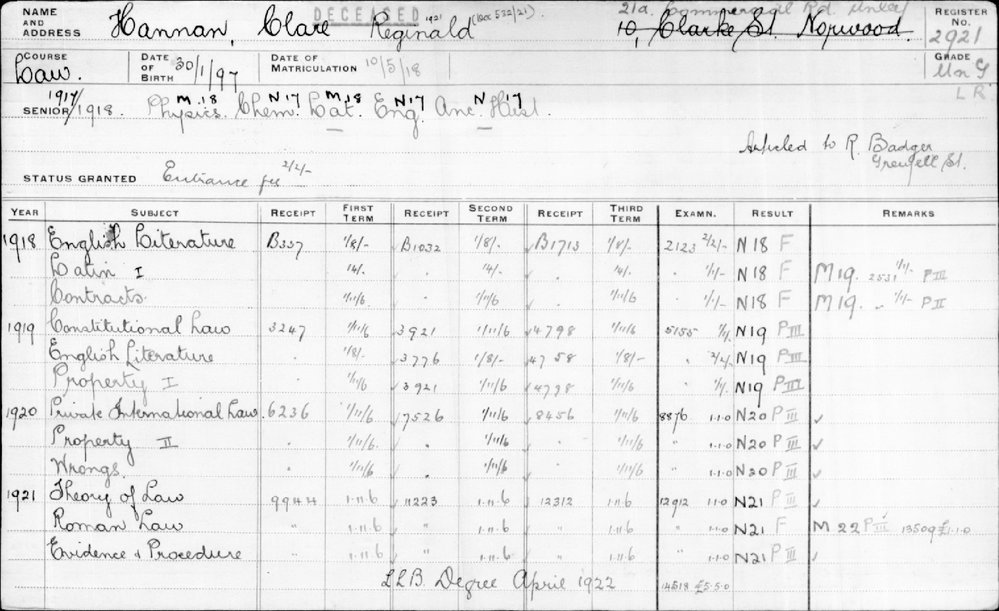 DECEASED
NAME AND ADDRESS Hannan, Clare Reginald 1921 (Doc 532/21) 21a, Commercial Rd. Unley
10, Clarke St. Norwood. REGISTER No. 2921
COURSE Law. DATE OF BIRTH 30/1/97 DATE OF MATRICULATION 10/5/18 GRADE Un G
LR
SENIOR 1917/1918. Physics. M.18 Chem. N17 Lat. M.18 Eng. N17 Anc. Hist. N 17
Articled to R. Badger
Grenfell St.
STATUS GRANTED Entrance fee 2/2/-
YEAR SUBJECT RECEIPT FIRST TERM RECEIPT SECOND TERM RECEIPT THIRD TERM EXAMN. RESULT REMARKS
1918 English Literature B337 1/8/- B1032 1/8/- B1713 1/8/- 2123 2/2/- N18 F
Latin I 14/- 14/- 14/- 1/1/- N18 F M19. 2531 1/1/- P III
Contracts 1/11/6 1/11/6 1/11/6 1/1/- N18 F M19. " 1/1/- P II
1919 Constitutional Law 3247 1/11/6 3921 1/11/6 4798 1/11/6 5155 1/1. N19 P III
English Literature 1/8/- 3776 1/8/- 4758 1/8/- " 2/2/- N19 P III
Property I 1/11/6 3921 1/11/6 4798 1/11/6 " 1/1. N19 P III
1920 Private International Law. 6236 1/11/6 7526 1/11/6 8456 1/11/6 8876 1.1.0 N20 P III ✓
Property II " 1/11/6 " 1/11/6 " 1/11/6 " 1.1.0 N20 P III ✓
Wrongs. 1/11/6 1/11/6 1/11/6 " 1.1.0 N20 P III ✓
1921 Theory of Law 9944 1.11.6 11223 1.11.6 12312 1.11.6 12912 1.1.0 N21 P III ✓
Roman Law " 1.11.6 " 1.11.6 " 1.11.6 " 1.1.0 N21 F M 22 P III 13509 £1.1.0
Evidence & Procedure " 1.11.6 " 1.11.6 " 1.11.6 " 1.1.0 N21 P III ✓
LLB. Degree April 1922 14518 £5.5.0